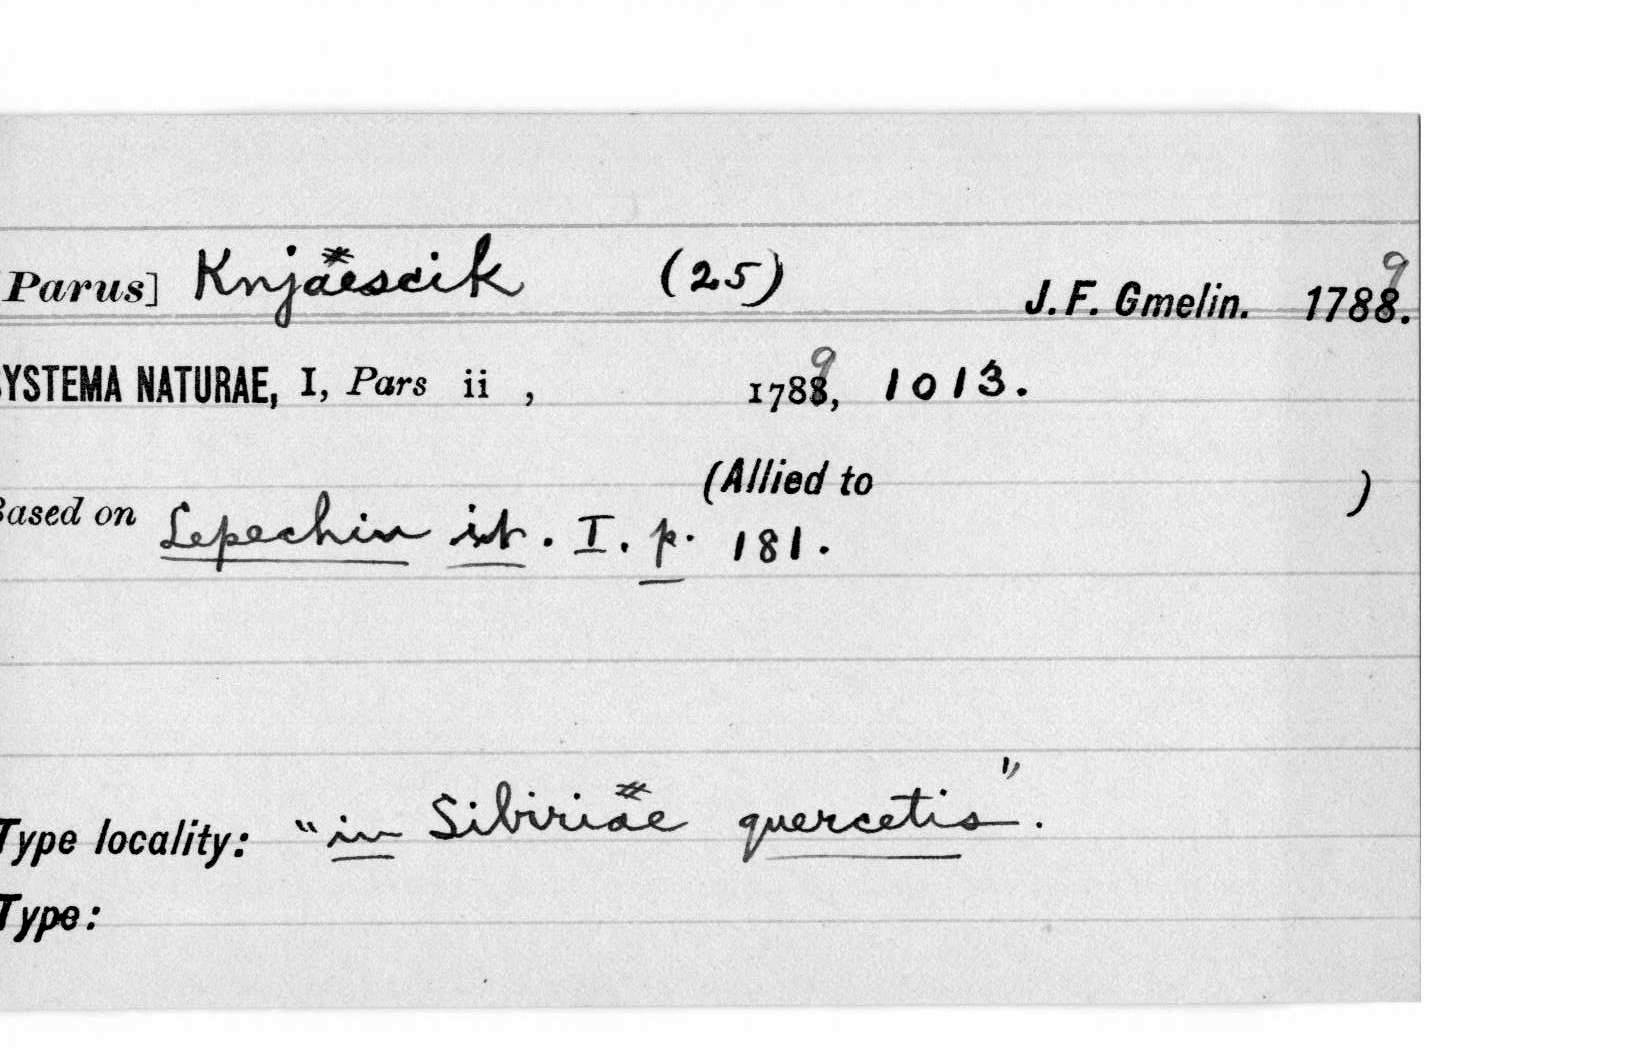 Parus] Knjaescik (25) J. F. Gmelin. 1788. 9
YSTEMA NATURAE, I, Pars ii , 1788, 9 1013.
(Allied to )
ased on Lepechin it. I. p. 181.
Type locality: "in Sibiriae quercetis".
Type: